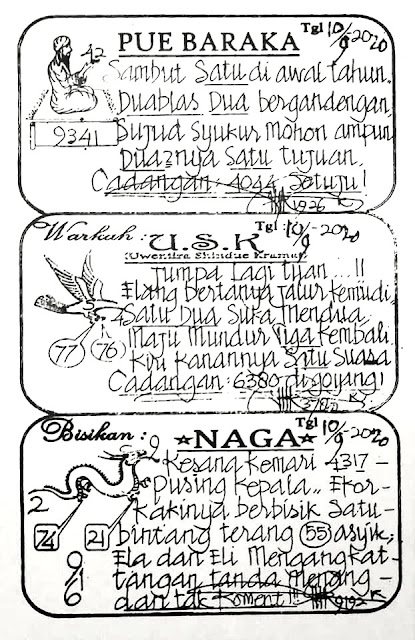 PUE BARAKA
Tgl 10/9-2020
42
9341
Sambut Satu di awal tahun.
Duablas Dua bergandengan,
Sujud Syukur Mohon ampun
Dua2nya Satu tujuan.
Cadangan: 4044 Setuju!
1926
Warkah:
U.S.K
Tgl: 10/9-2020
(Uwentira Shindue Kramus)
Jumpa lagi tuan...!!
Elang bertanya jalur kemudi,
Satu Dua Suka Mendua.
Maju Mundur Tiga Kembali
Kiri kanannya Satu Suara
Cadangan: 6380 digoyang!
77
76
Bisikan:
NAGA
Tgl 10/9-2020
Kesana kemari 4317-
pusing kepala.. Ekor-
kakinya berbisik Satu-
bintang terang 55 asyik,
Ela dan Eli Mengangkat-
tangan tanda menang-
dan tak Koment.!!!
9192
9
2
24
21
9
1
6